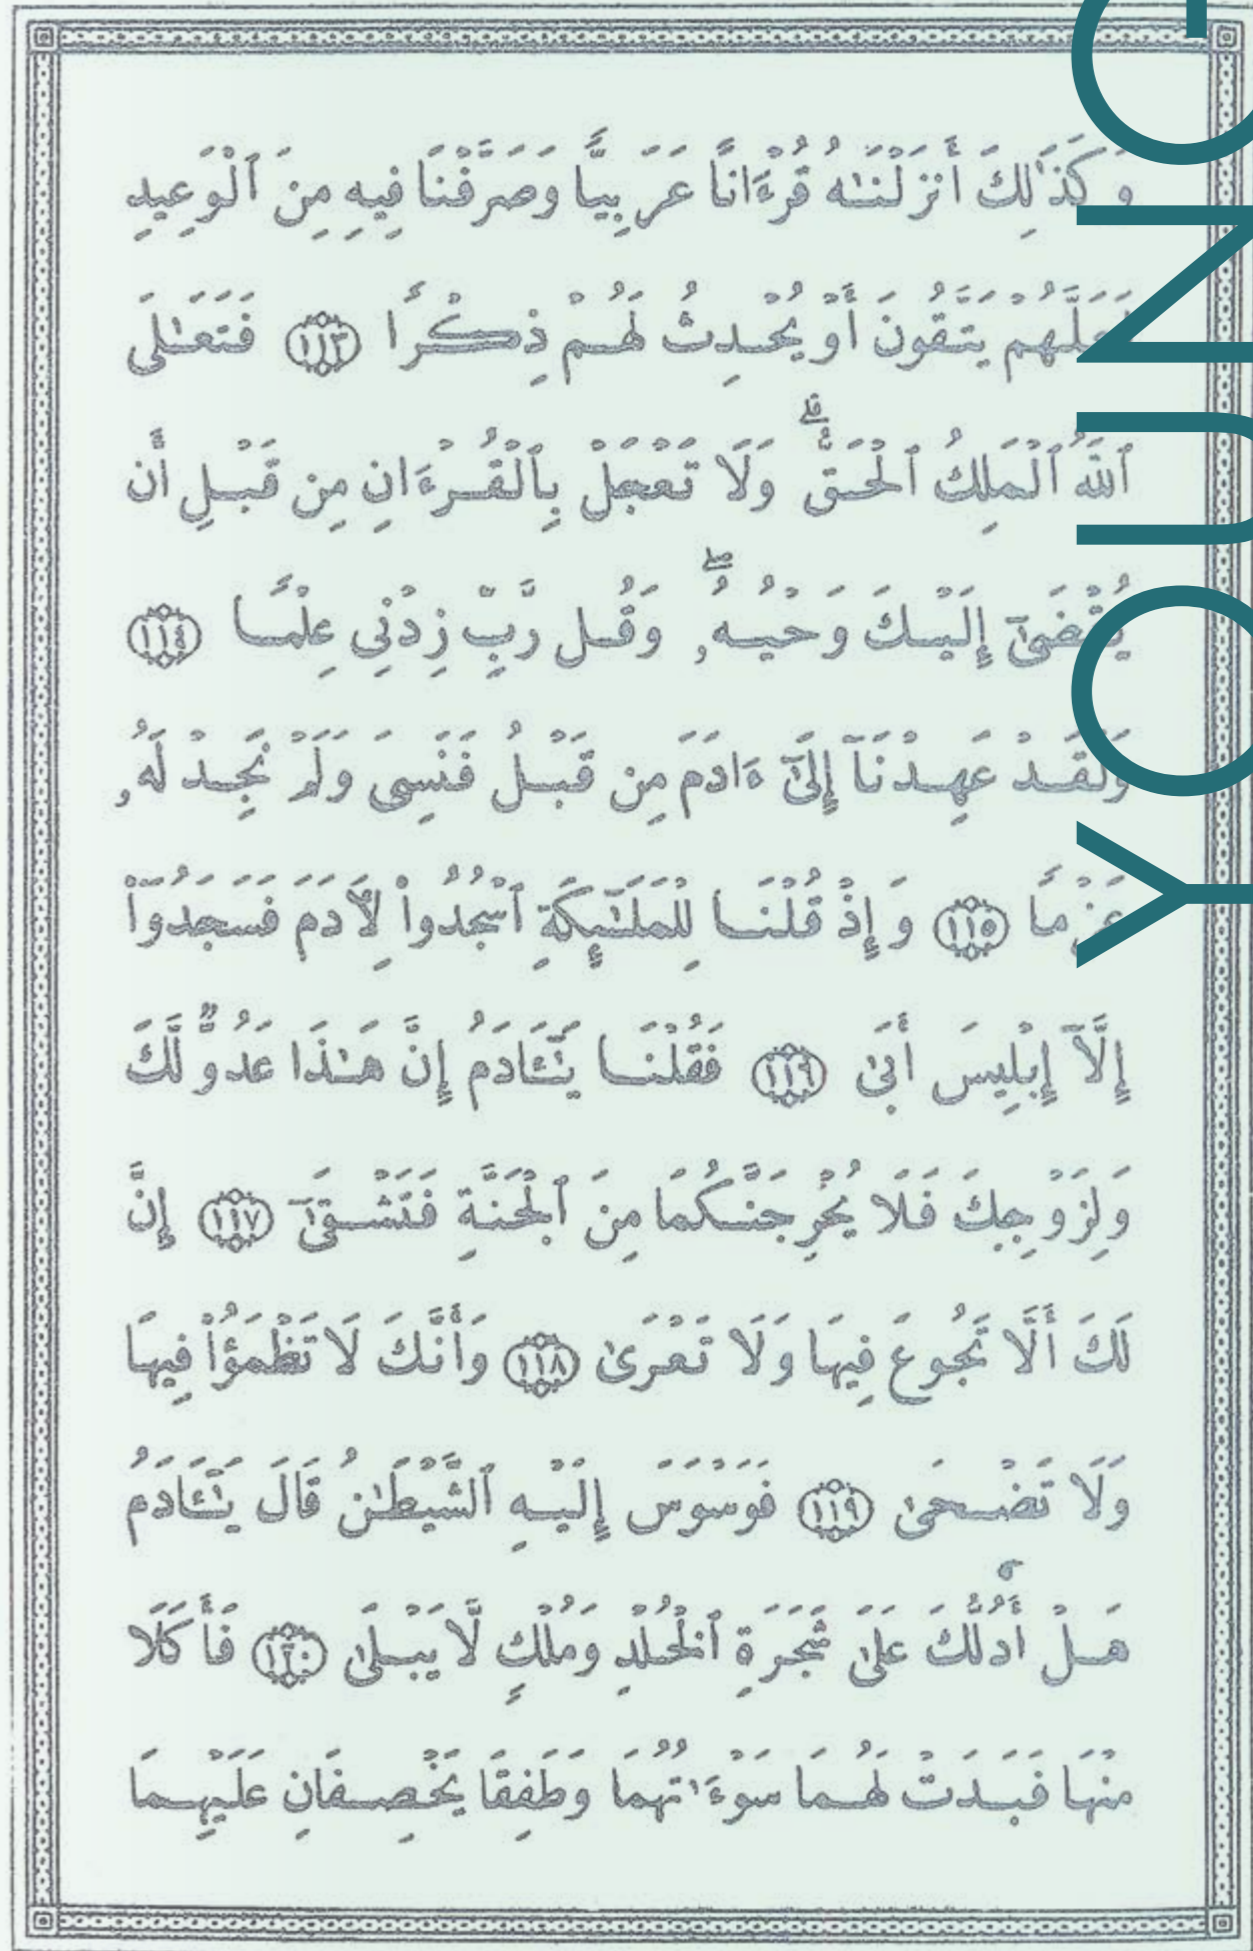 وَكَذَٰلِكَ أَنزَلْنَـٰهُ قُرْءَانًا عَرَبِيًّا وَصَرَّفْنَا فِيهِ مِنَ ٱلْوَعِيدِ
لَعَلَّهُمْ يَتَّقُونَ أَوْ يُحْدِثُ لَهُمْ ذِكْرًا ١١٣ فَتَعَـٰلَى
ٱللَّهُ ٱلْمَلِكُ ٱلْحَقُّ ۗ وَلَا تَعْجَلْ بِٱلْقُرْءَانِ مِن قَبْلِ أَن
يُقْضَىٰٓ إِلَيْكَ وَحْيُهُۥ ۖ وَقُل رَّبِّ زِدْنِى عِلْمًا ١١٤
وَلَقَدْ عَهِدْنَآ إِلَىٰٓ ءَادَمَ مِن قَبْلُ فَنَسِىَ وَلَمْ نَجِدْ لَهُۥ
عَزْمًا ١١٥ وَإِذْ قُلْنَا لِلْمَلَـٰٓئِكَةِ ٱسْجُدُوا۟ لِـَٔادَمَ فَسَجَدُوٓا۟
إِلَّآ إِبْلِيسَ أَبَىٰ ١١٦ فَقُلْنَا يَـٰٓـَٔادَمُ إِنَّ هَـٰذَا عَدُوٌّ لَّكَ
وَلِزَوْجِكَ فَلَا يُخْرِجَنَّكُمَا مِنَ ٱلْجَنَّةِ فَتَشْقَىٰٓ ١١٧ إِنَّ
لَكَ أَلَّا تَجُوعَ فِيهَا وَلَا تَعْرَىٰ ١١٨ وَأَنَّكَ لَا تَظْمَؤُا۟ فِيهَا
وَلَا تَضْحَىٰ ١١٩ فَوَسْوَسَ إِلَيْهِ ٱلشَّيْطَـٰنُ قَالَ يَـٰٓـَٔادَمُ
هَلْ أَدُلُّكَ عَلَىٰ شَجَرَةِ ٱلْخُلْدِ وَمُلْكٍ لَّا يَبْلَىٰ ١٢٠ فَأَكَلَا
مِنْهَا فَبَدَتْ لَهُمَا سَوْءَٰتُهُمَا وَطَفِقَا يَخْصِفَانِ عَلَيْهِمَا
YOUNG